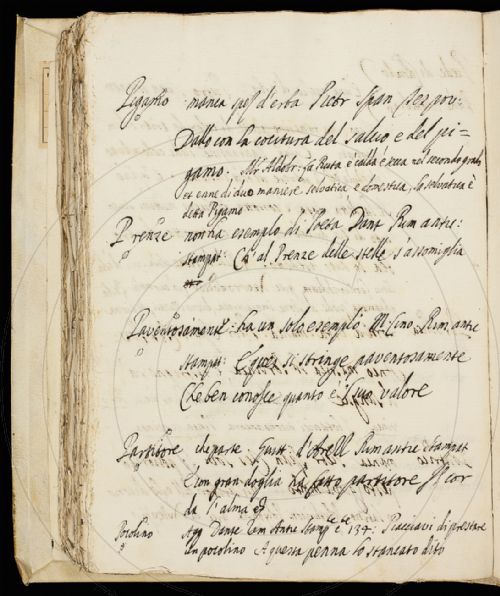 Pigamo manca spez d'erba Pietr Span Tez pov:
Dallo con la cocitura del salvio e del pi=
gamo. Mr Aldobr: La Ruta è calda e secca nel secondo grado
et enne di duo maniere selvatica e domestica, la selvatica è
detta Pigamo
Prenze non ha esempio di Poeta Dant Rim antic:
stampat: Ch' al Prenze delle stelle s'assomiglia
Paventosamente ha un solo esempio. M. Cino Rim antic
stampat: E quei si stringe paventosamente
Che ben conosce quanto è 'l suo valore
Partitore che parte Guitt: d'Arezz Rim antic stampat
E con gran doglia ha fatto partitore 'l cor
da l'alma
Pocolino Agg Dante Rim Antic stamp 134: Piacciavi di prestare
un pocolino A questa penna lo stancato dito